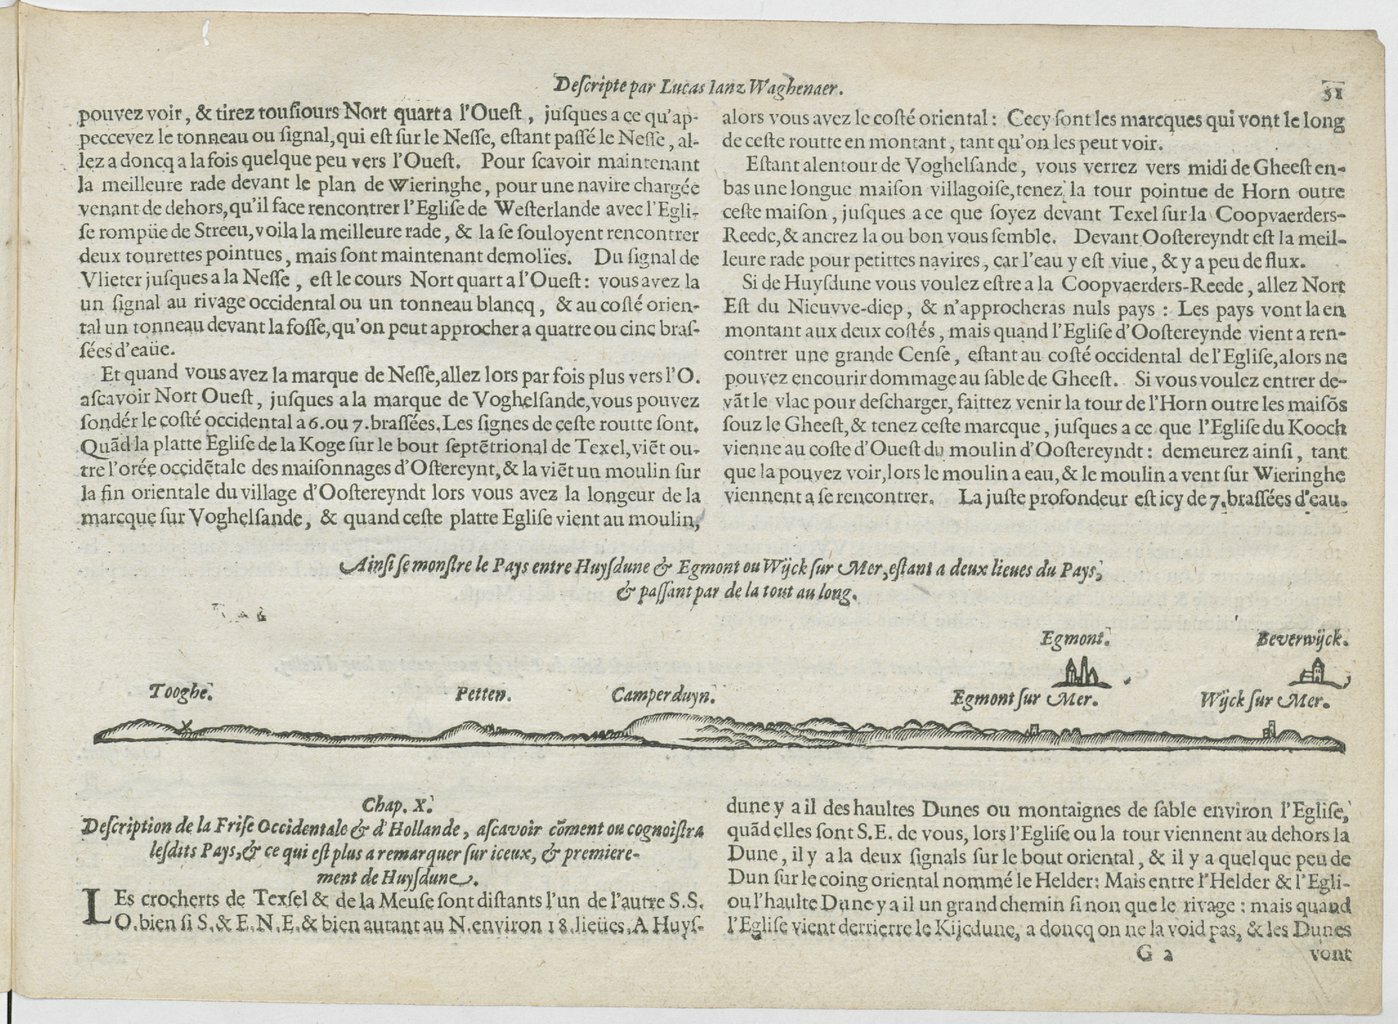 Descripte par Lucas Ianz Waghenaer.
51
pouvez voir, & tirez tousiours Nort quart a l'Ouest, jusques a ce qu'ap-
peccevez le tonneau ou signal, qui est sur le Nesse, estant passé le Nesse, al-
lez a doncq a la fois quelque peu vers l'Ouest. Pour scavoir maintenant
la meilleure rade devant le plan de Wieringhe, pour une navire chargée
venant de dehors, qu'il face rencontrer l'Eglise de Westerlande avec l'Egli-
se rompüe de Streeu, voila la meilleure rade, & la se souloyent rencontrer
deux tourettes pointues, mais sont maintenant demolies. Du signal de
Vlieter jusques a la Nesse, est le cours Nort quart a l'Ouest: vous avez la
un signal au rivage occidental ou un tonneau blancq, & au costé orien-
tal un tonneau devant la fosse, qu'on peut approcher a quatre ou cinc bras-
sées d'eaüe.
Et quand vous avez la marque de Nesse, allez lors par fois plus vers l'O.
ascavoir Nort Ouest, jusques a la marque de Voghelsande, vous pouvez
sondér le costé occidental a 6. ou 7. brassées. Les signes de ceste routte sont.
Quãd la platte Eglise de la Koge sur le bout septẽtrional de Texel, viẽt ou-
tre l'orée occidẽtale des maisonnages d'Ostereynt, & la viẽt un moulin sur
la fin orientale du village d'Oostereyndt lors vous avez la longeur de la
marcque sur Voghelsande, & quand ceste platte Eglise vient au moulin,
alors vous avez le costé oriental: Cecy sont les marcques qui vont le long
de ceste routte en montant, tant qu'on les peut voir.
Estant alentour de Voghelsande, vous verrez vers midi de Gheest en-
bas une longue maison villagoise, tenez la tour pointue de Horn outre
ceste maison, jusques a ce que soyez devant Texel sur la Coopvaerders-
Reede, & ancrez la ou bon vous semble. Devant Oostereyndt est la meil-
leure rade pour petittes navires, car l'eau y est viue, & y a peu de flux.
Si de Huysdune vous voulez estre a la Coopvaerders-Reede, allez Nort
Est du Nieuvve-diep, & n'approcheras nuls pays: Les pays vont la en
montant aux deux costés, mais quand l'Eglise d'Oostereynde vient a ren-
contrer une grande Cense, estant au costé occidental de l'Eglise, alors ne
pouvez encourir dommage au sable de Gheest. Si vous voulez entrer de-
vãt le vlac pour descharger, faittez venir la tour de l'Horn outre les maisõs
souz le Gheest, & tenez ceste marcque, jusques a ce que l'Eglise du Kooch
vienne au coste d'Ouest du moulin d'Oostereyndt: demeurez ainsi, tant
que la pouvez voir, lors le moulin a eau, & le moulin a vent sur Wieringhe
viennent a se rencontrer. La juste profondeur est icy de 7. brassées d'eau.
Ainsi se monstre le Pays entre Huysdune & Egmont ou Wijck sur Mer, estant a deux lieues du Pays,
& passant par de la tout au long.
Egmont.
Beverwijck.
Tooghe.
Petten.
Camperduyn.
Egmont sur Mer.
Wijck sur Mer.
Chap. X.
Description de la Frise Occidentale & d'Hollande, ascavoir cõment ou cognoistra
lesdits Pays, & ce qui est plus a remarquer sur iceux, & premiere-
ment de Huysdune.
LEs crocherts de Texsel & de la Meuse sont distants l'un de l'autre S.S.
O. bien si S, & E. N. E. & bien autant au N. environ 18. lieües, A Huys-
dune y a il des haultes Dunes ou montaignes de sable environ l'Eglise,
quãd elles sont S.E. de vous, lors l'Eglise ou la tour viennent au dehors la
Dune, il y a la deux signals sur le bout oriental, & il y a quelque peu de
Dun sur le coing oriental nommé le Helder: Mais entre l'Helder & l'Egli-
ou l'haulte Dune y a il un grand chemin si non que le rivage: mais quand
l'Eglise vient derrierre le Kijcdune, a doncq on ne la void pas, & les Dunes
G 2
vont